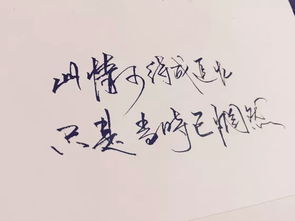 此情可待成追忆
只是当時已惘然